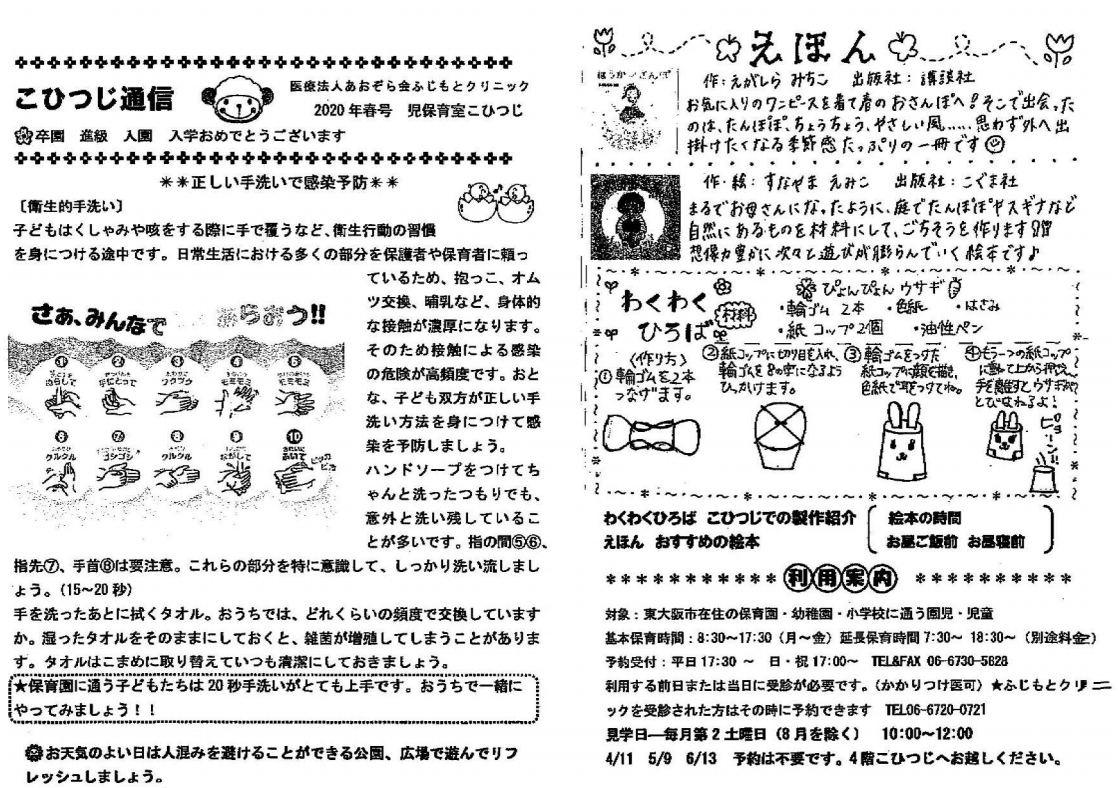 こひつじ通信
医療法人あおぞら会ふじもとクリニック
2020年春号　児保育室こひつじ
卒園　進級　入園　入学おめでとうございます
＊＊正しい手洗いで感染予防＊＊
〔衛生的手洗い〕
子どもはくしゃみや咳をする際に手で覆うなど、衛生行動の習慣
を身につける途中です。日常生活における多くの部分を保護者や保育者に頼っ
ているため、抱っこ、オム
ツ交換、哺乳など、身体的
な接触が濃厚になります。
そのため接触による感染
の危険が高頻度です。おと
な、子ども双方が正しい手
洗い方法を身につけて感
染を予防しましょう。
ハンドソープをつけてち
ゃんと洗ったつもりでも、
意外と洗い残しているこ
とが多いです。指の間⑤⑥、
指先⑦、手首⑧は要注意。これらの部分を特に意識して、しっかり洗い流しまし
ょう。（15～20秒）
さぁ、みんなで あらおう!!
① ② ③ ④ ⑤
ぬらして 手にとって ブクブク モミモミ モミモミ
⑥ ⑦ ⑧ ⑨ ⑩
クルクル ゴシゴシ クルクル ながして ふいて ピッカピカ
手を洗ったあとに拭くタオル。おうちでは、どれくらいの頻度で交換しています
か。湿ったタオルをそのままにしておくと、雑菌が増殖してしまうことがありま
す。タオルはこまめに取り替えていつも清潔にしておきましょう。
★保育園に通う子どもたちは20秒手洗いがとても上手です。おうちで一緒に
やってみましょう！！
お天気のよい日は人混みを避けることができる公園、広場で遊んでリフ
レッシュしましょう。
えほん
作：えがしら みちこ　出版社：講談社
お気に入りのワンピースを着て春のおさんぽへ！そこで出会った
のは、たんぽぽ、ちょうちょう、やさしい風……思わず外へ出
掛けたくなる季節感たっぷりの一冊です
作・絵：すなやま えみこ　出版社：こぐま社
まるでお母さんになったように、庭でたんぽぽやスギナなど
自然にあるものを材料にして、ごちそうを作ります
想像力豊かに次々と遊びが膨らんでいく絵本です♪
わくわく
ひろば
材料
ぴょんぴょんウサギ
・輪ゴム 2本　・色紙　・はさみ
・紙コップ2個　・油性ペン
〈作り方〉
①輪ゴムを2本
つなげます。
②紙コップに切り目を入れ、
輪ゴムを8の字になるよう
ひっかけます。
③輪ゴムをつけた
紙コップに顔を描き、
色紙で耳をつけてね。
④もう一つの紙コップ
に重ねて上から押さえ、
手を離すとウサギが
とびはねるよ！
ピョーン!!
わくわくひろば　こひつじでの製作紹介
えほん　おすすめの絵本
絵本の時間
お昼ご飯前　お昼寝前
＊＊＊＊＊＊＊＊＊＊＊利用案内＊＊＊＊＊＊＊＊＊＊
対象：東大阪市在住の保育園・幼稚園・小学校に通う園児・児童
基本保育時間：8:30～17:30（月～金）延長保育時間 7:30～ 18:30～（別途料金）
予約受付：平日 17:30 ～　日・祝 17:00～　TEL&FAX 06-6730-5828
利用する前日または当日に受診が必要です。（かかりつけ医可）★ふじもとクリニ
ックを受診された方はその時に予約できます　TEL06-6720-0721
見学日―毎月第2土曜日（8月を除く）　10:00～12:00
4/11　5/9　6/13　予約は不要です。4階こひつじへお越しください。